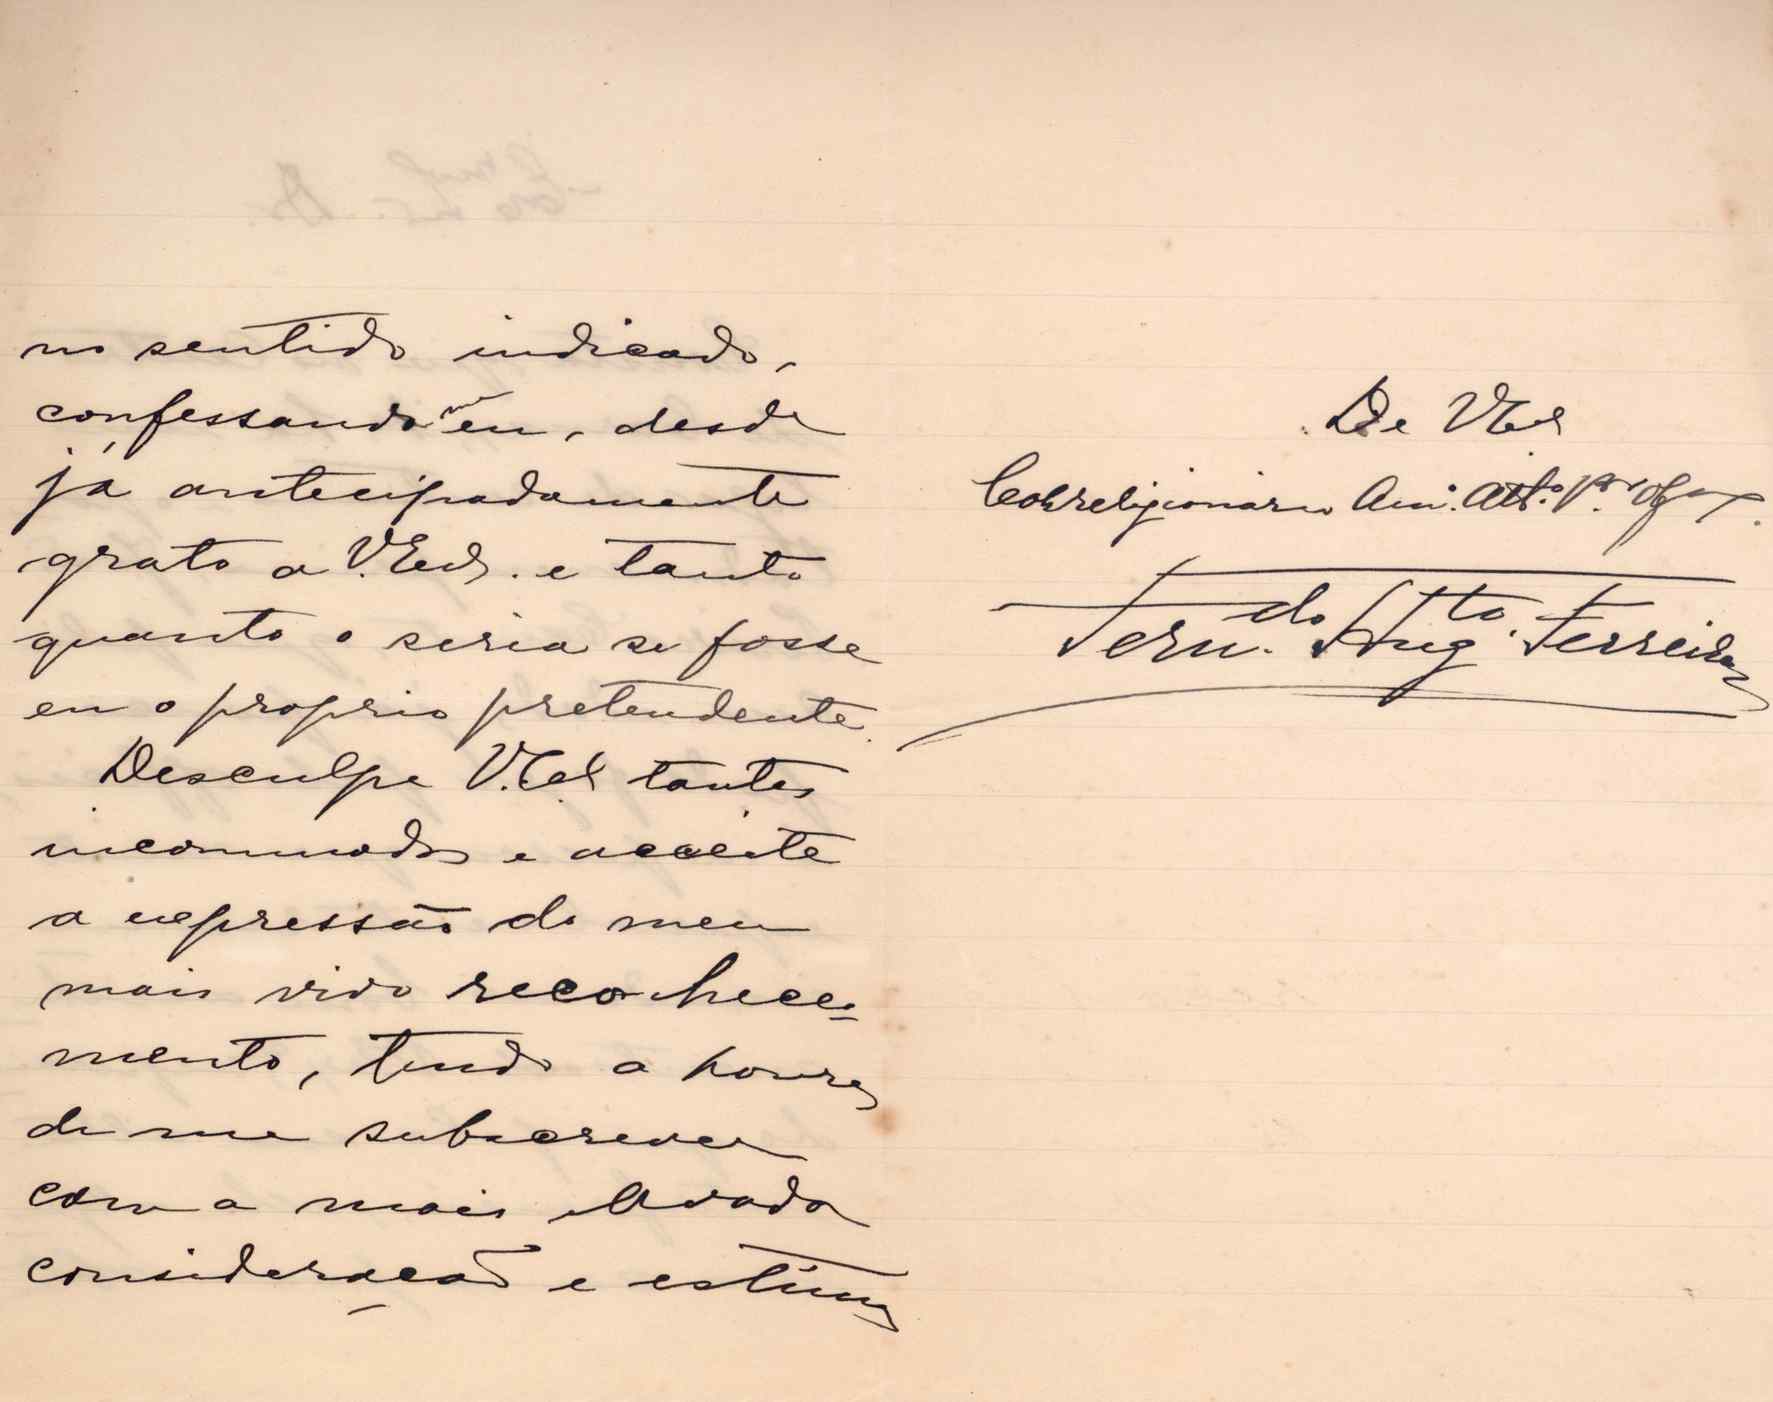 no sentido indicado,
confessando me eu, desde
já antecipadamente
grato a V. Ex.ª e tanto
quanto o seria se fosse
eu o proprio pretendente.
Desculpe V. Ex.ª tantos
incommodos e acceite
a expressão do meu
mais vivo reconheci=
mento, tendo a honra
de me subscrever
com a mais elevada
consideração e estima
De V Ex.ª
Correligionario Am.º Att.º
Fern.do Aug.to Ferreira